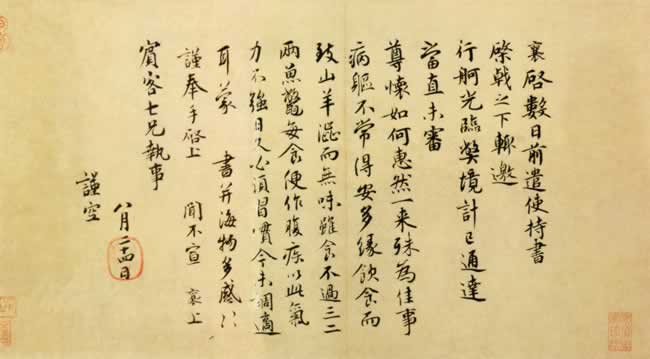 襄啓數日前遣使持書
棨戟之下輒邀
行舸光臨弊境計已通達
當直未審
尊懷如何惠然一来殊為佳事
病軀不常得安多緣飲食而
致山羊澁而無味雖食不過三二
兩魚鱉每食便作腹疾以此氣
力不強日久必須習慣今未調適
耳蒙 書并海物多感〻
謹奉手啓上 聞不宣 襄上
賓客七兄執事
八月廿四日
謹空